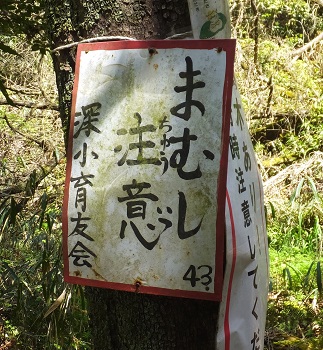 まむし
注意
ちゅうい
深小育友会
43
時注意してくだ